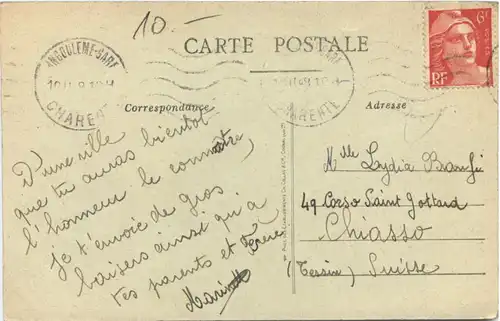 10.-
CARTE POSTALE
ANGOULEME-GARE
CHARENTE
CHARENTE
6F
RF
Correspondance
Adresse
D'une ville
que tu auras bientot
l'honneur de connaitre,
je t'envoie de gros
baisers ainsi qu'à
tes parents et
Melle Lydia
49 Corso Saint Gottard
Chiasso
(Tessin) Suisse